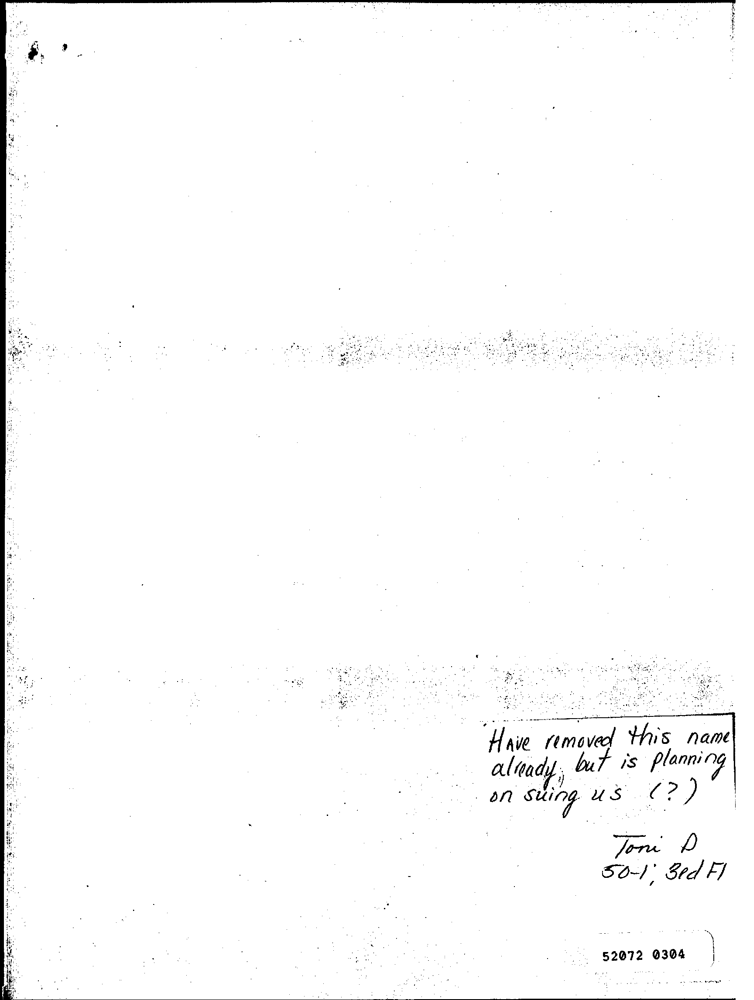 Have removed this name
already, but is planning
on suing us (?)
Toni D
50-1, 3rd Fl
52072 0304